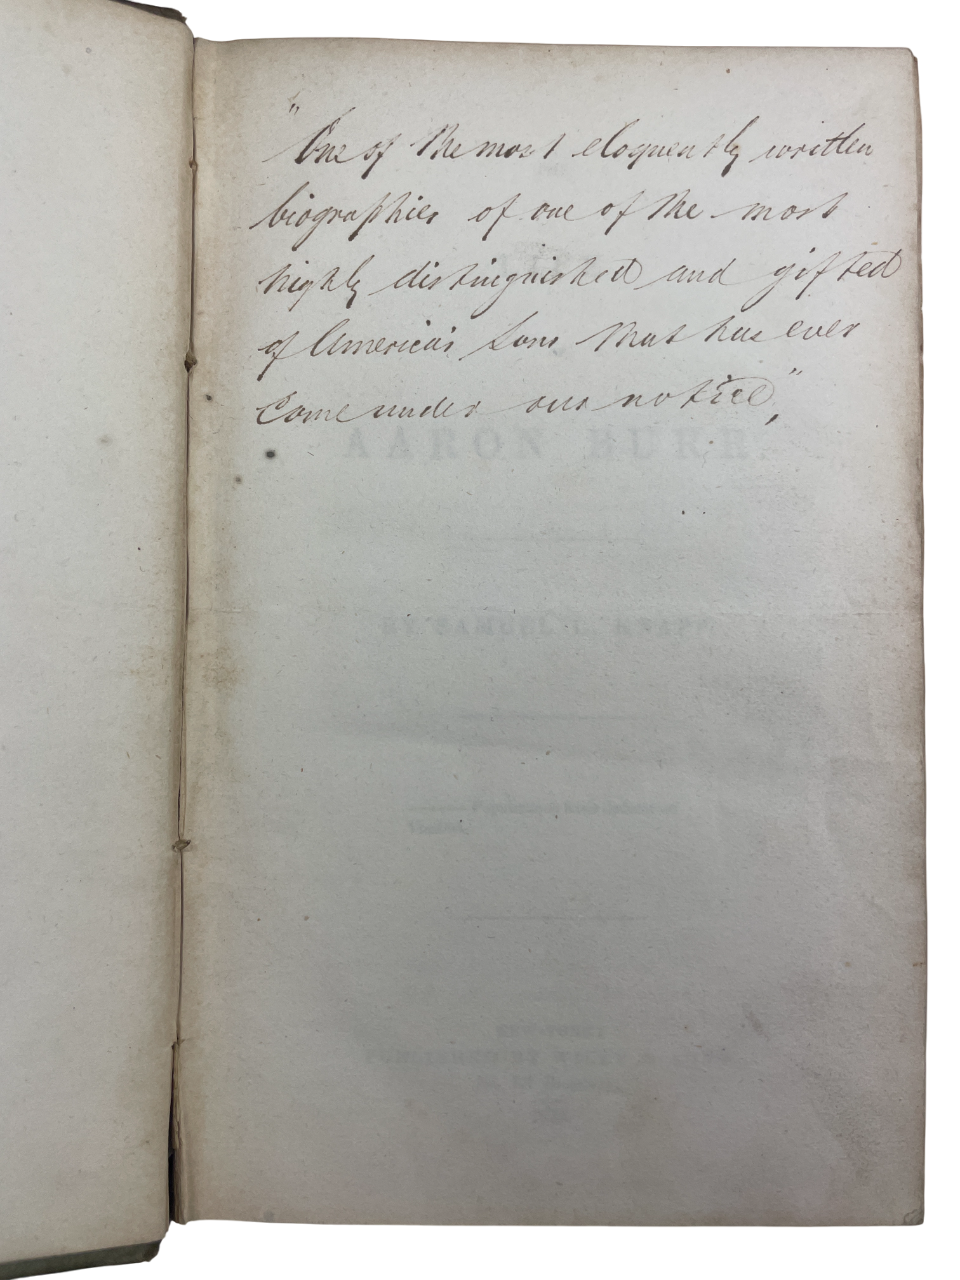 "One of the most eloquently written
biographies of one of the most
highly distinguished and gifted
of America's Sons that has ever
Come under our notice,"
AARON BURR.
BY SAMUEL L. KNAPP.
NEW-YORK:
PUBLISHED BY WILEY & LONG